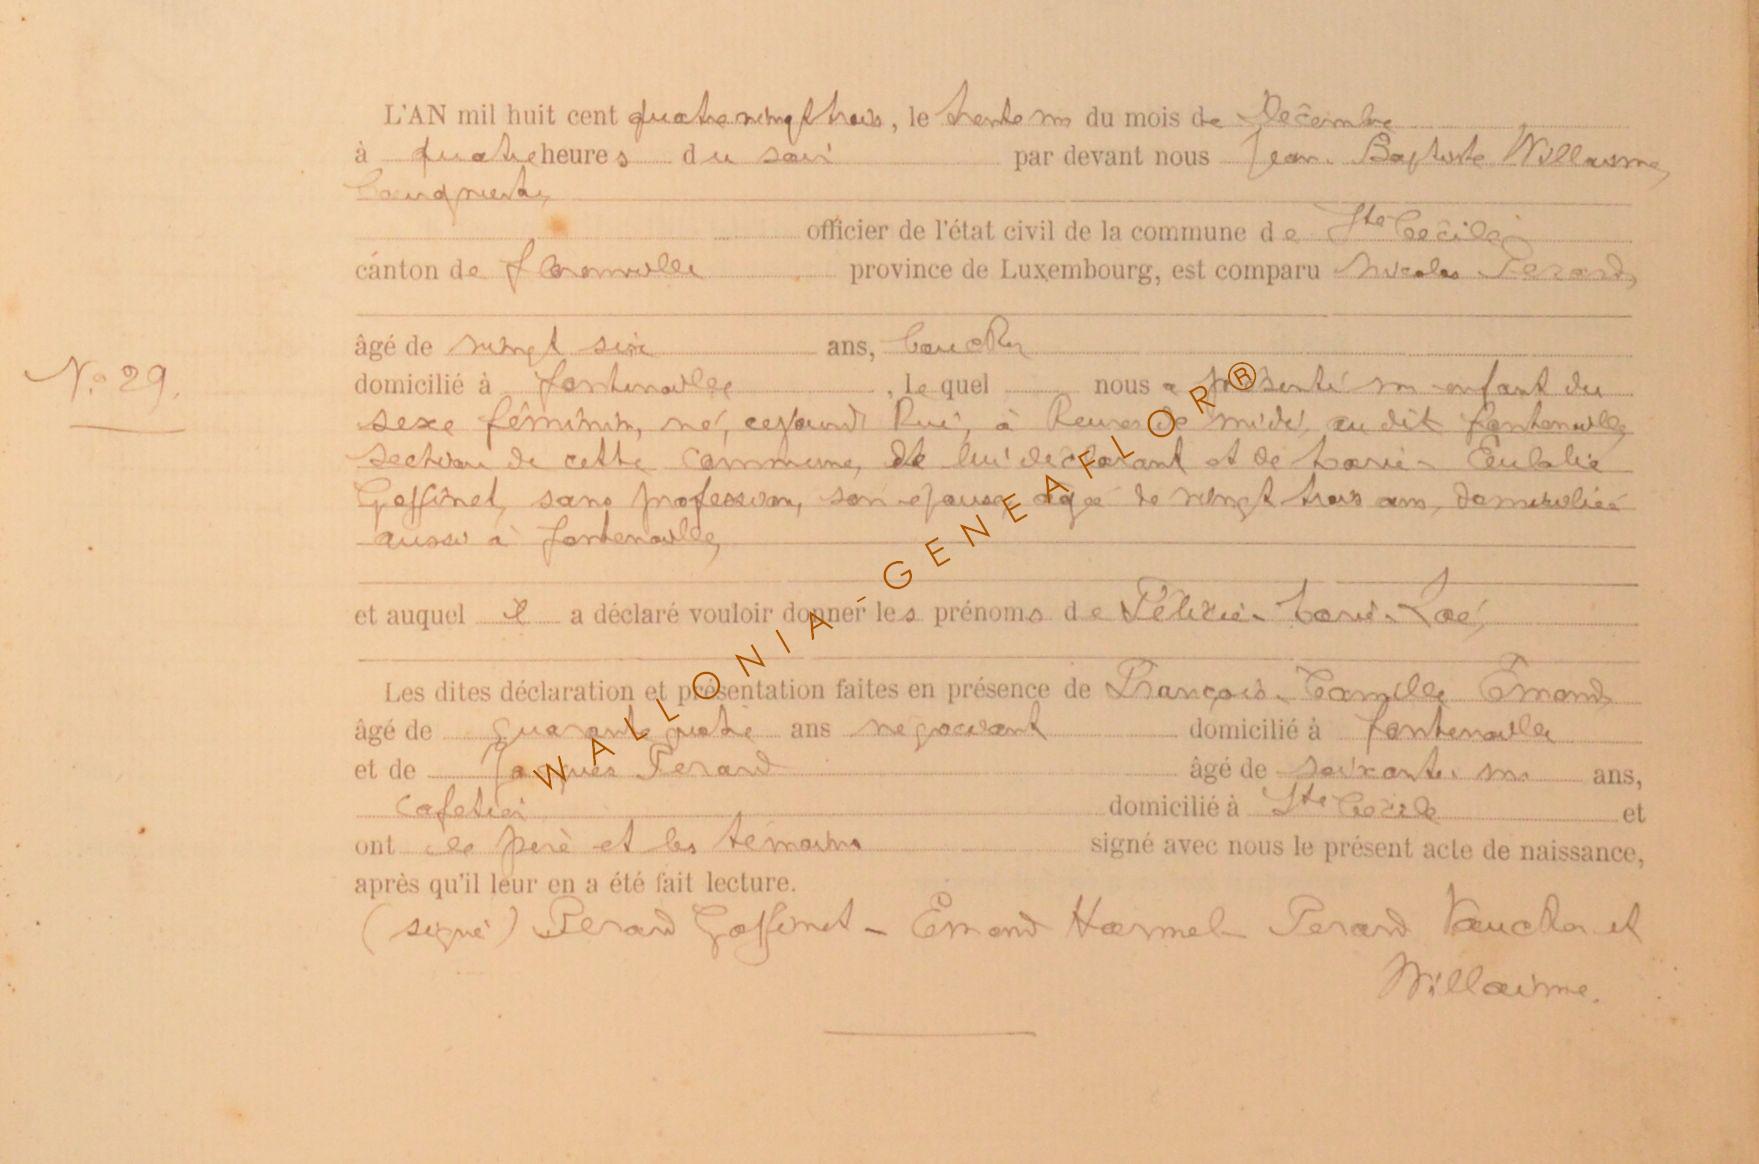 L'AN mil huit cent quatre vingt trois, le trente un du mois de Décembre
à quatre heures du soir par devant nous Jean Baptiste Willaume,
officier de l'état civil de la commune de Ste Cécile,
canton de florenville province de Luxembourg, est comparu Nicolas Perard,
âgé de vingt six ans,
N.o 29.
domicilié à fontenoille, le quel nous a présenté un enfant du
sexe féminin, né, cejourd'hui, à heures de midi, au dit fontenoille
section de cette commune, de lui déclarant et de Marie Eulalie
Goffinet, sans profession, son épouse agée de vingt trois ans, domiciliée
aussi à fontenoille,
et auquel il a déclaré vouloir donner les prénoms de Félicie Marie Zoé,
Les dites déclaration et présentation faites en présence de François Camille Emond,
âgé de quarante quatre ans négociant domicilié à fontenoille
et de Jacques Perard âgé de soixante un ans,
cafetier domicilié à Ste Cécile et
ont le père et les témoins signé avec nous le présent acte de naissance,
après qu'il leur en a été fait lecture.
(signé) Perard Goffinet - Emond Hormel Perard et
Willaume.
WALLONIA - GENEAFLOR®